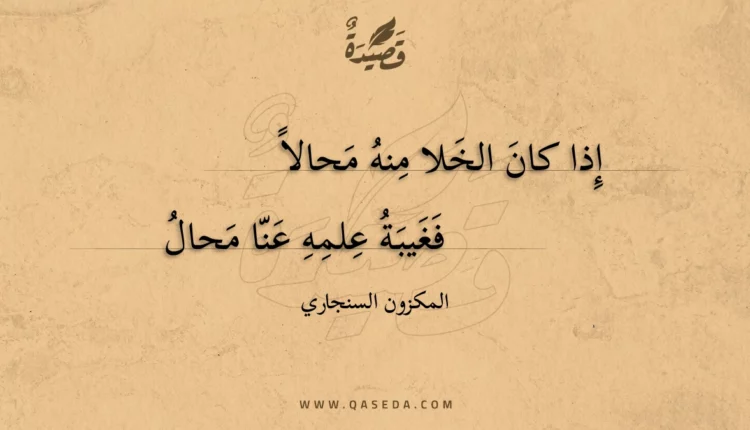 قَصِيدَةٌ
إِذا كانَ الخَلا مِنهُ مَحالاً
فَغَيبَةُ عِلمِهِ عَنّا مَحالُ
المكزون السنجاري
WWW.QASEDA.COM